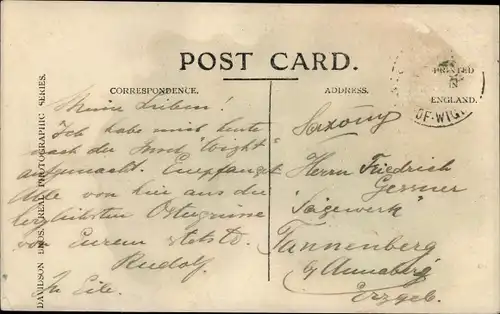 POST CARD.
PRINTED
IN
ENGLAND.
CORRESPONDENCE.
ADDRESS.
OF·WIG
DAVIDSON BROS. REAL PHOTOGRAPHIC SERIES.
Meine Lieben!
Ich habe mich heute
nach der Insel "Wight"
aufgemacht. Empfanget
Alle von hier aus die
herzlichsten Ostergrüsse
von Eurem
Rudolf.
In Eile.
Herrn Friedrich
Gessner
"Sägewerk"
Tannenberg
b/ Annaberg
Erzgeb.